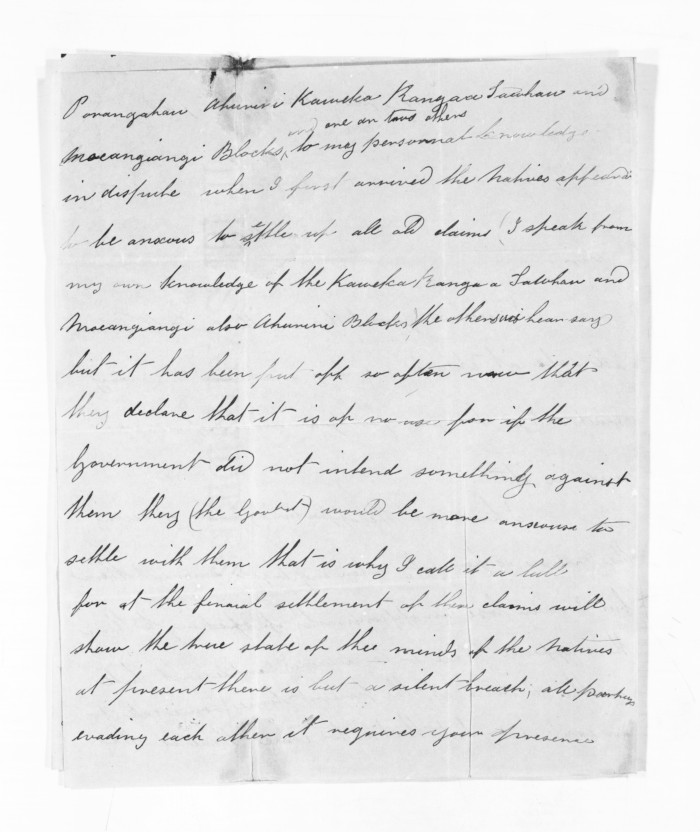 Porangahau Ahuriri Kaweka Kangaa Tawhau and
and one an two others
Moeangiangi Blocks, to my personnal knowledge
in dispute when I first arrived the Natives appeard
to be anxous to settle up all old claims (I speak from
my own knowledge of the Kaweka Kanga a Tawhau and
Moeangiangi also Ahuriri Blocks) the others is hear say
but it has been put off so often now that
they declare that it is of no use for if the
Government did not intend something against
them they (the Govert) would be more anxouse to
settle with them that is why I call it a lull
for at the finaial settlement of these claims will
show the true state of thee minds of the Natives
at present there is but a silent breach; all partys
evading each other it requires your presence